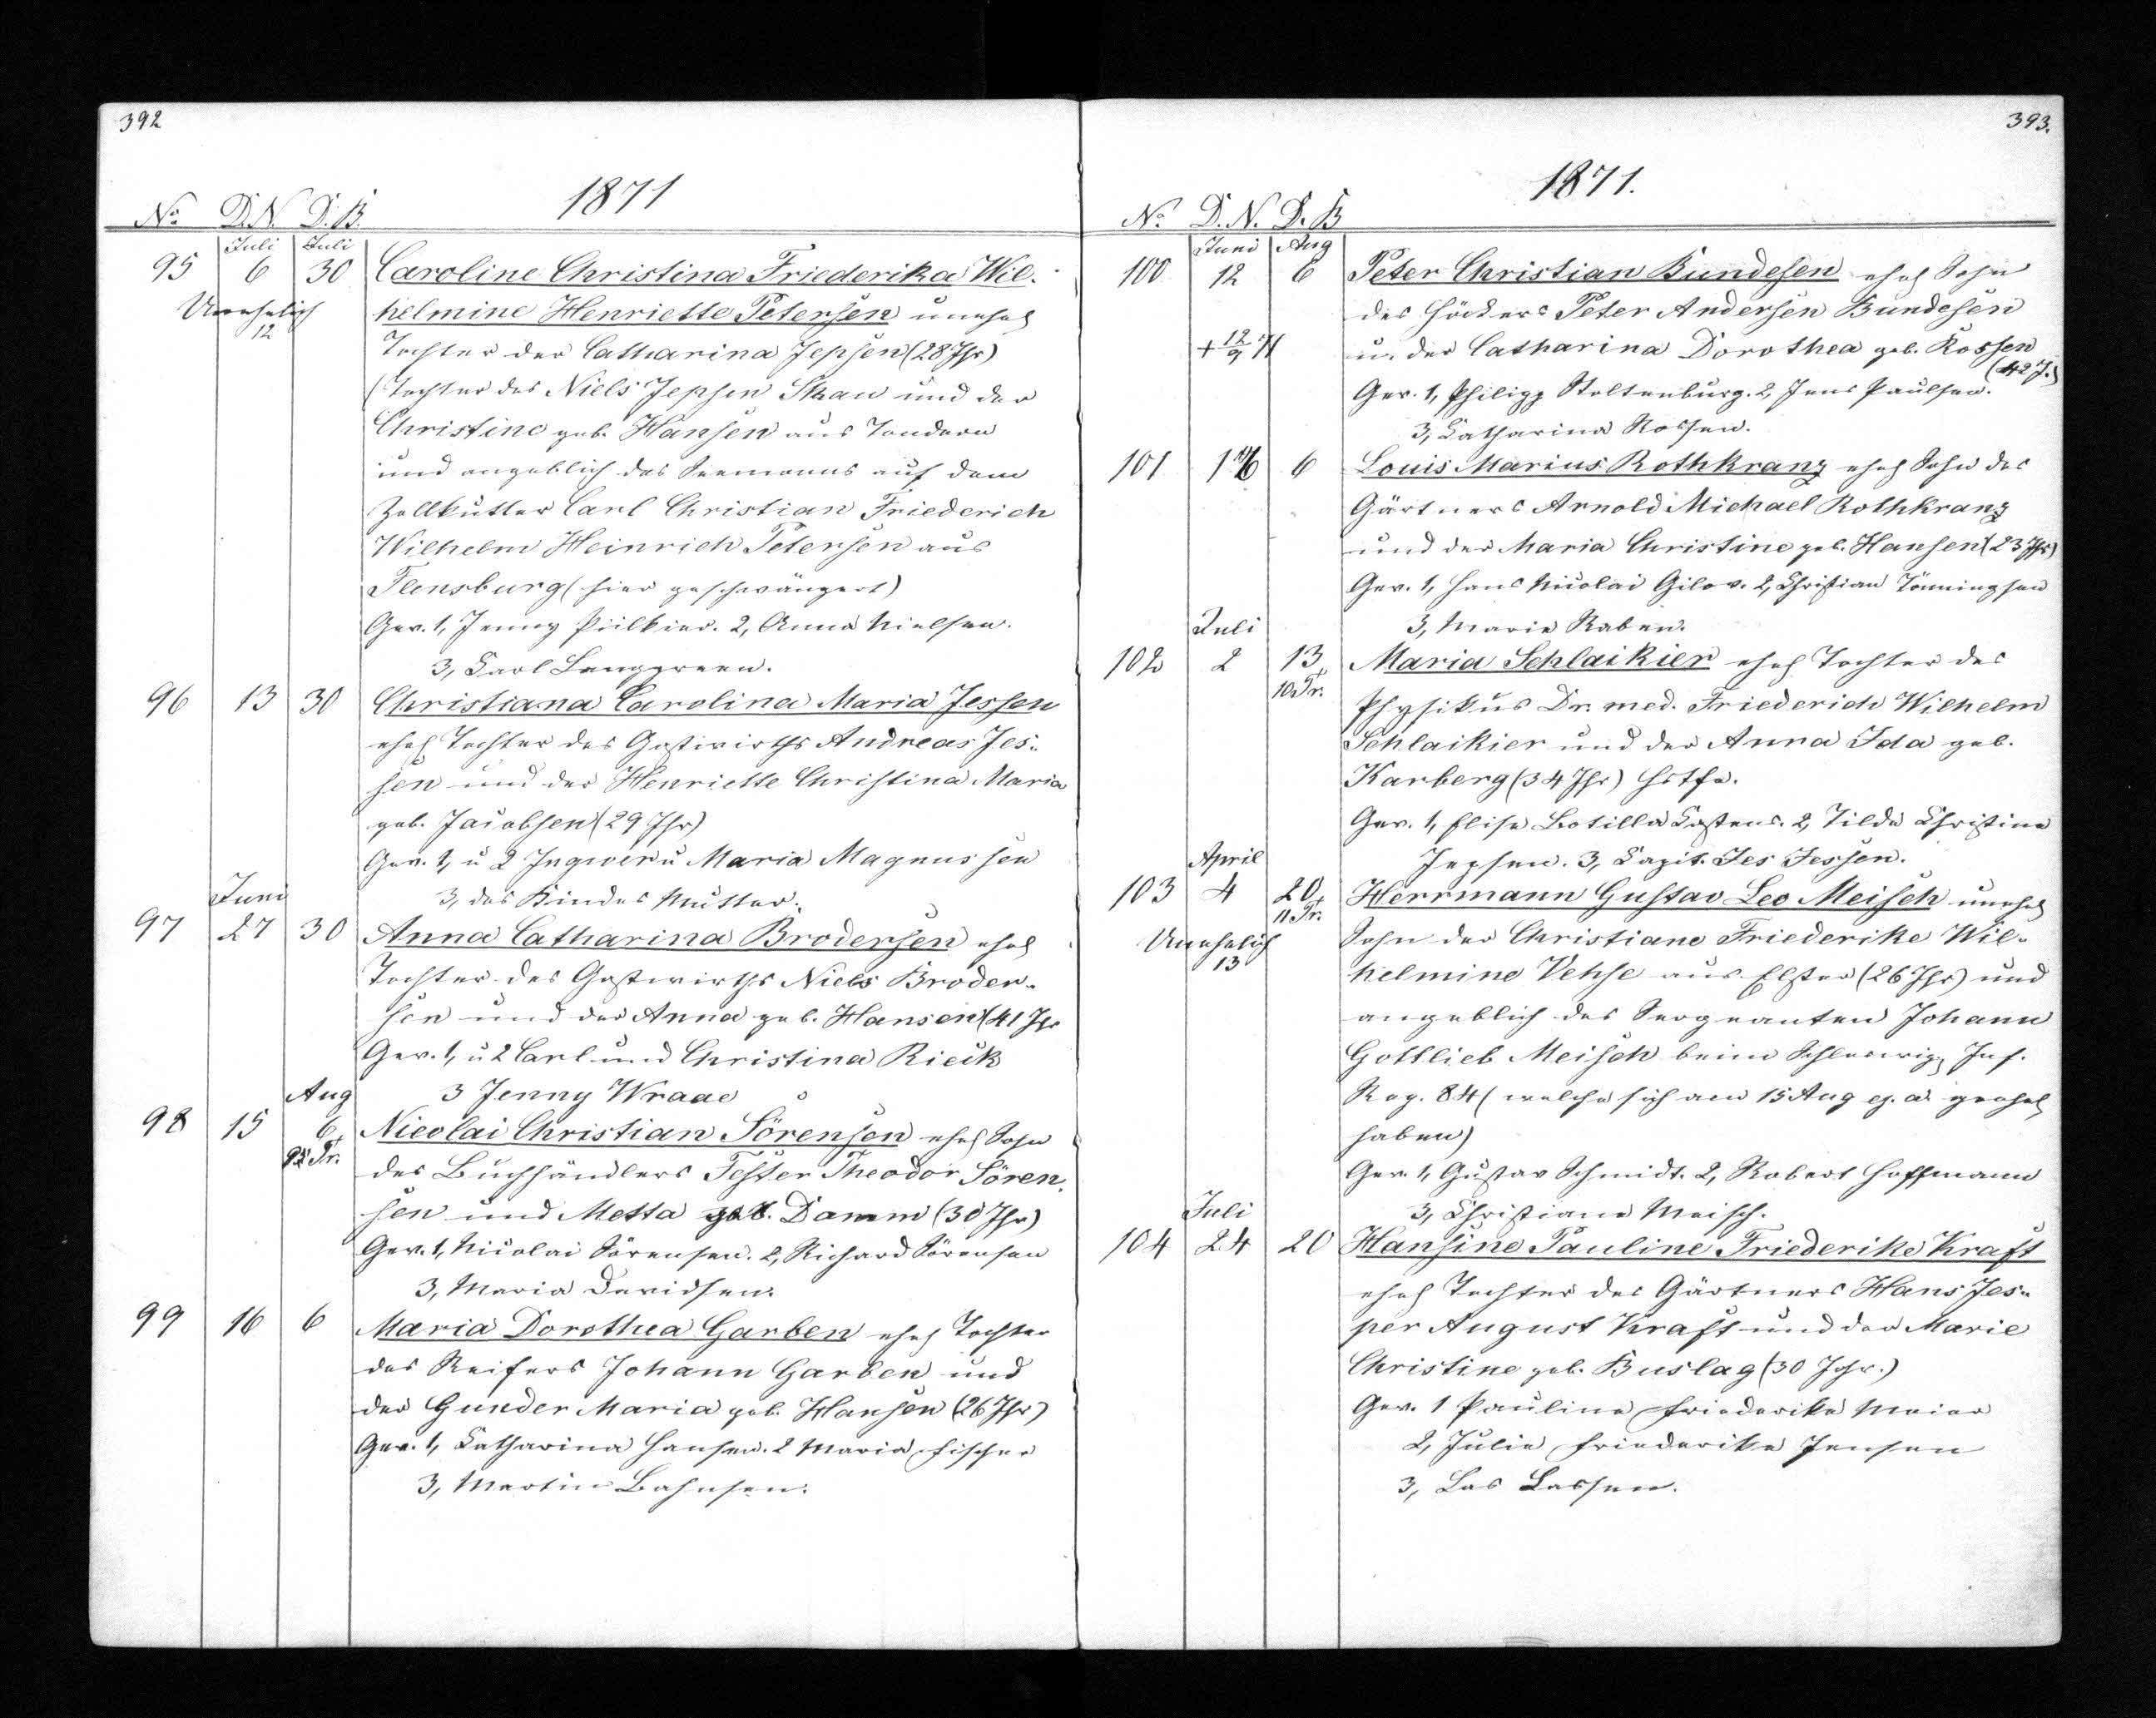 392
1871
No. D.N. D.B.
Juli Juli
95 6 30 Caroline Christina Friederika Wil-
Unehelich helmine Henriette Petersen unehel
12
Tochter der Catharina Jepsen (28 Jhr)
(Tochter des Niels Jepsen Skau und der
Christine geb. Hansen aus Tondern
und angeblich des Seemanns auf dem
Zollkutter Carl Christian Friederich
Wilhelm Heinrich Petersen aus
Flensburg (hier geschwängert)
Gev. 1, Jenny Piilkier. 2, Anna Nielsen.
3, Carl Langgreen.
96 13 30 Christiana Carolina Maria Jessen
ehel Tochter des Gastwirths Andreas Jes-
sen und der Henriette Christina Maria
geb. Jacobsen (29 Jhr)
Gev. 1, u 2 Ingwer u Maria Magnussen
Juni 3, des Kindes Mutter.
97 27 30 Anna Catharina Brodersen ehel
Tochter des Gastwirths Niels Broder-
sen und der Anna geb. Hansen (41 Jhr
Gev. 1, u 2 Carl und Christina Rieck
Aug 3 Jenny Wraae
98 15 6 Nicolai Christian Sörensen ehel Sohn
9 Tr. des Buchhändlers Fester Theodor Sören-
sen und Metta geb. Damm (30 Jhr)
Gev. 1, Nicolai Sörensen. 2, Richard Sörensen
3, Maria Davidsen.
99 16 6 Maria Dorothea Garben ehel Tochter
des Reifers Johann Garben und
der Gunder Maria geb. Hansen (26 Jhr)
Gev. 1, Catharina Hansen. 2 Maria Fischer
3, Martin Bahnsen.
393.
1871.
No. D.N. D.B
Juni Aug
100 12 6 Peter Christian Bundesen ehel Sohn
des Höckers Peter Andersen Bundesen
+ 12/9 71 u. der Catharina Dorothea geb. Rossen
(42 J.)
Gev. 1, Philipp Stoltenburg. 2, Jens Paulsen.
3, Catharina Rossen.
101 16 6 Louis Marius Rothkranz ehel Sohn des
Gärtners Arnold Michael Rothkranz
und der Maria Christine geb. Hansen (23 Jhr)
Gev. 1, Hans Nicolai Gilov. 2, Christian Tönningsen
Juli 3, Marie Raben.
102 2 13 Maria Schlaikier ehel Tochter des
10. Tr. Physikus Dr. med. Friederich Wilhelm
Schlaikier und der Anna Ida geb.
Karberg (34 Jhr)
Gev. 1, Elise Botilla Costens. 2, Tilda Christine
April Jepsen. 3, Capit. Jes Jessen.
103 4 20 Herrmann Gustav Leo Meisch unehel
11 Tr.
Unehelich Sohn der Christiane Friederike Wil-
13
helmine Vehse aus Elster (26 Jhr) und
angeblich des Sergeanten Johann
Gottlieb Meisch beim Schleswig. Inf.
Reg. 84 (welche sich am 15 Aug ej. a. geehel
haben)
Gev. 1, Gustav Schmidt. 2, Robert Hoffmann
Juli 3, Christiane Meisch.
104 24 20 Hansine Pauline Friederike Kraft
ehel Tochter des Gärtners Hans Jes-
per August Kraft und der Marie
Christine geb. Buslag (30 Jhr.)
Gev. 1 Pauline Friederike Meier
2, Julie Friederike Jensen
3, Las Lassen.